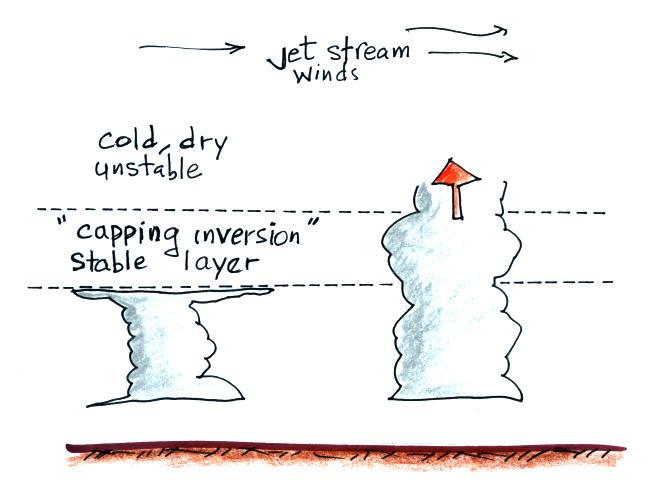 Jet stream
winds
cold, dry
unstable
"capping inversion"
stable layer